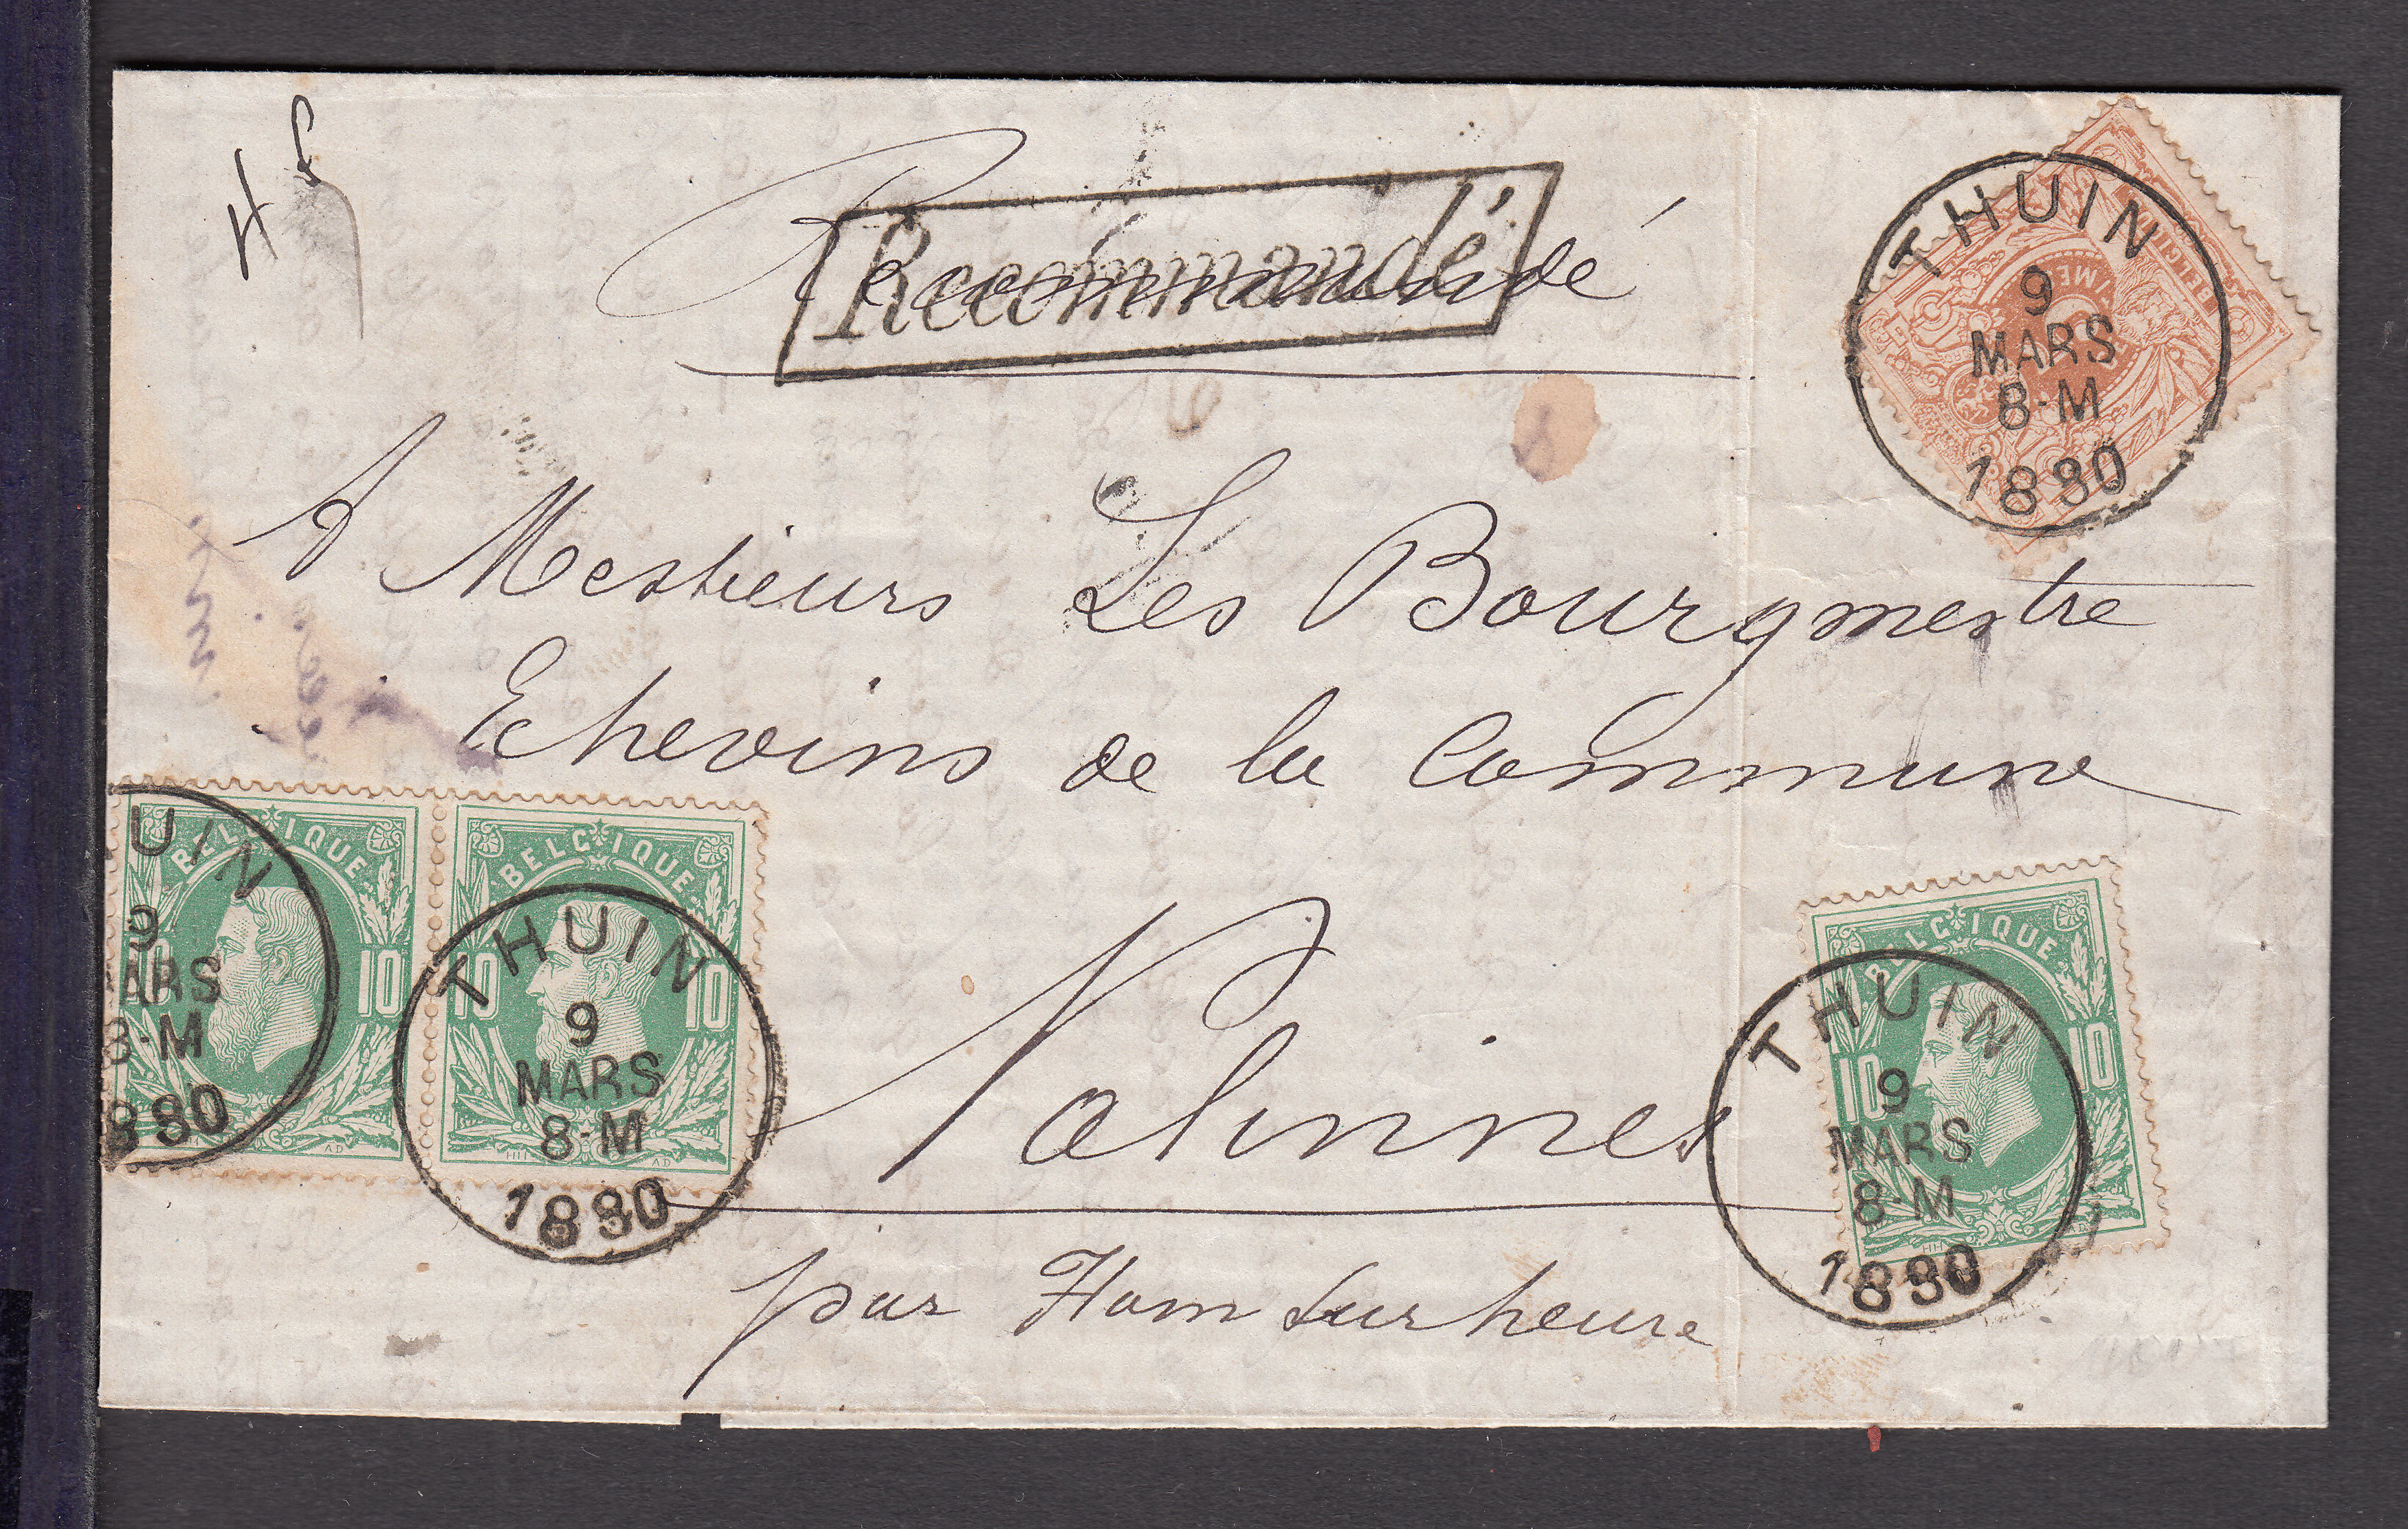 Recommandé
Recommandé
THUIN
9
MARS
8-M
1880
A Messieurs Les Bourgmestre
Echevins de la Commune
Nalinnes
par Ham Sur heure
BELGIQUE
10
UIN
9
ARS
8-M
880
BELGIQUE
10 10
THUIN
9
MARS
8-M
1880
BELGIQUE
10 10
THUIN
9
MARS
8-M
1880